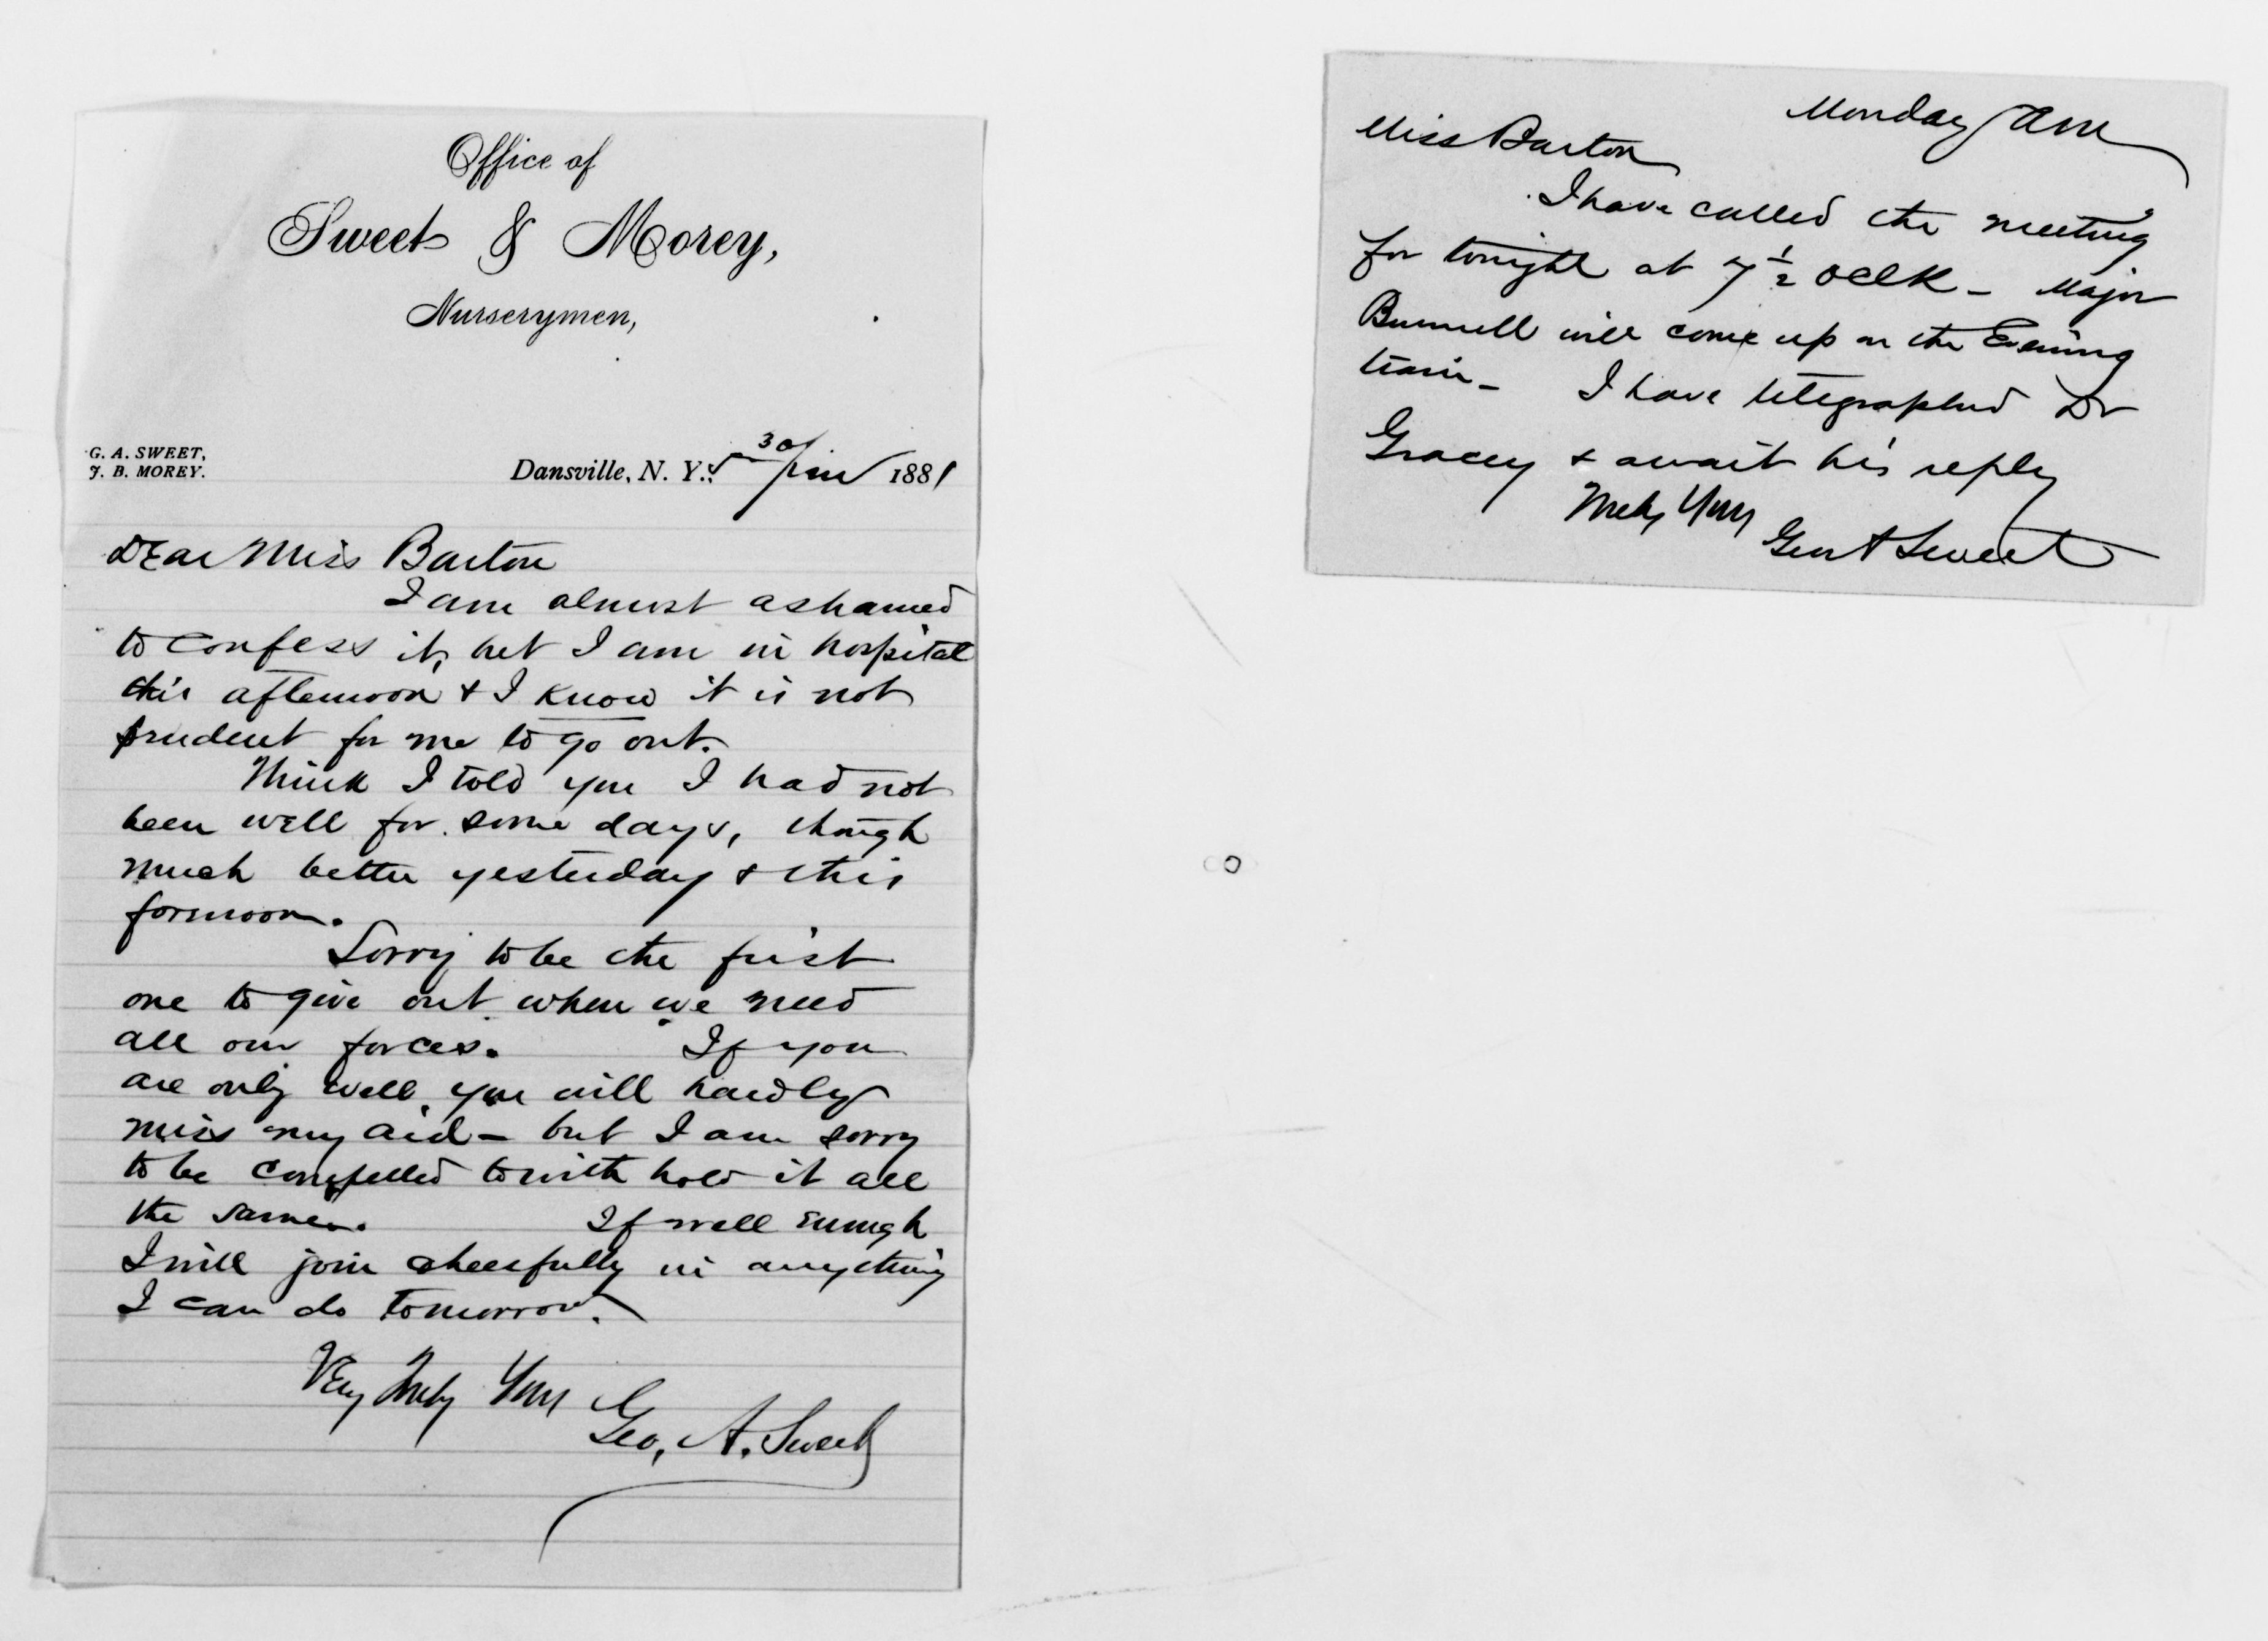 Office of
Sweet & Morey,
Nurserymen,
G. A. SWEET,
J. B. MOREY.
Dansville, N. Y., 5 30 Pm 1881
Dear Miss Barton
I am almost ashamed
to confess it, but I am in hospital
this afternoon & I know it is not
prudent for me to go out.
Think I told you I had not
been well for some days, though
much better yesterday & this
forenoon.
Sorry to be the first
one to give out when we need
all our forces. If you
are only well, you will hardly
miss my aid - but I am sorry
to be compelled to with hold it all
the same. If well enough
I will join cheerfully in anything
I can do tomorrow.
Very Truly Yours
Geo. A. Sweet
Monday AM
Miss Barton
I have called the meeting
for tonight at 7 1/2 oclk - Major
Bunnell will come up on the Evening
train - I have telegraphed Dr
Gracey & await his reply
Truly Yours
Geo A Sweet